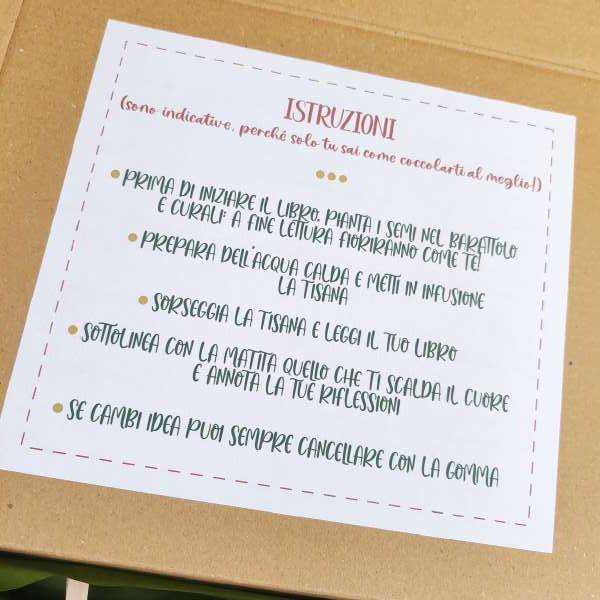 ISTRUZIONI
(sono indicative, perché solo tu sai come coccolarti al meglio!)
• PRIMA DI INIZIARE IL LIBRO, PIANTA I SEMI NEL BARATTOLO
E CURALI: A FINE LETTURA FIORIRANNO COME TE!
• PREPARA DELL'ACQUA CALDA E METTI IN INFUSIONE
LA TISANA
• SORSEGGIA LA TISANA E LEGGI IL TUO LIBRO
• SOTTOLINEA CON LA MATITA QUELLO CHE TI SCALDA IL CUORE
E ANNOTA LA TUE RIFLESSIONI
• SE CAMBI IDEA PUOI SEMPRE CANCELLARE CON LA GOMMA